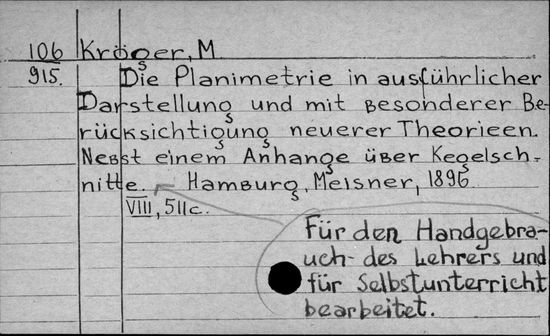 106 Kröger, M.
915. Die Planimetrie in ausführlicher
Darstellung und mit besonderer Be-
rücksichtigung neuerer Theorieen.
Nebst einem Anhange über Kegelsch-
nitte. Hamburg, Meisner, 1896
VIII, 511c.
Für den Handgebra-
uch des Lehrers und
für Selbstunterricht
bearbeitet.